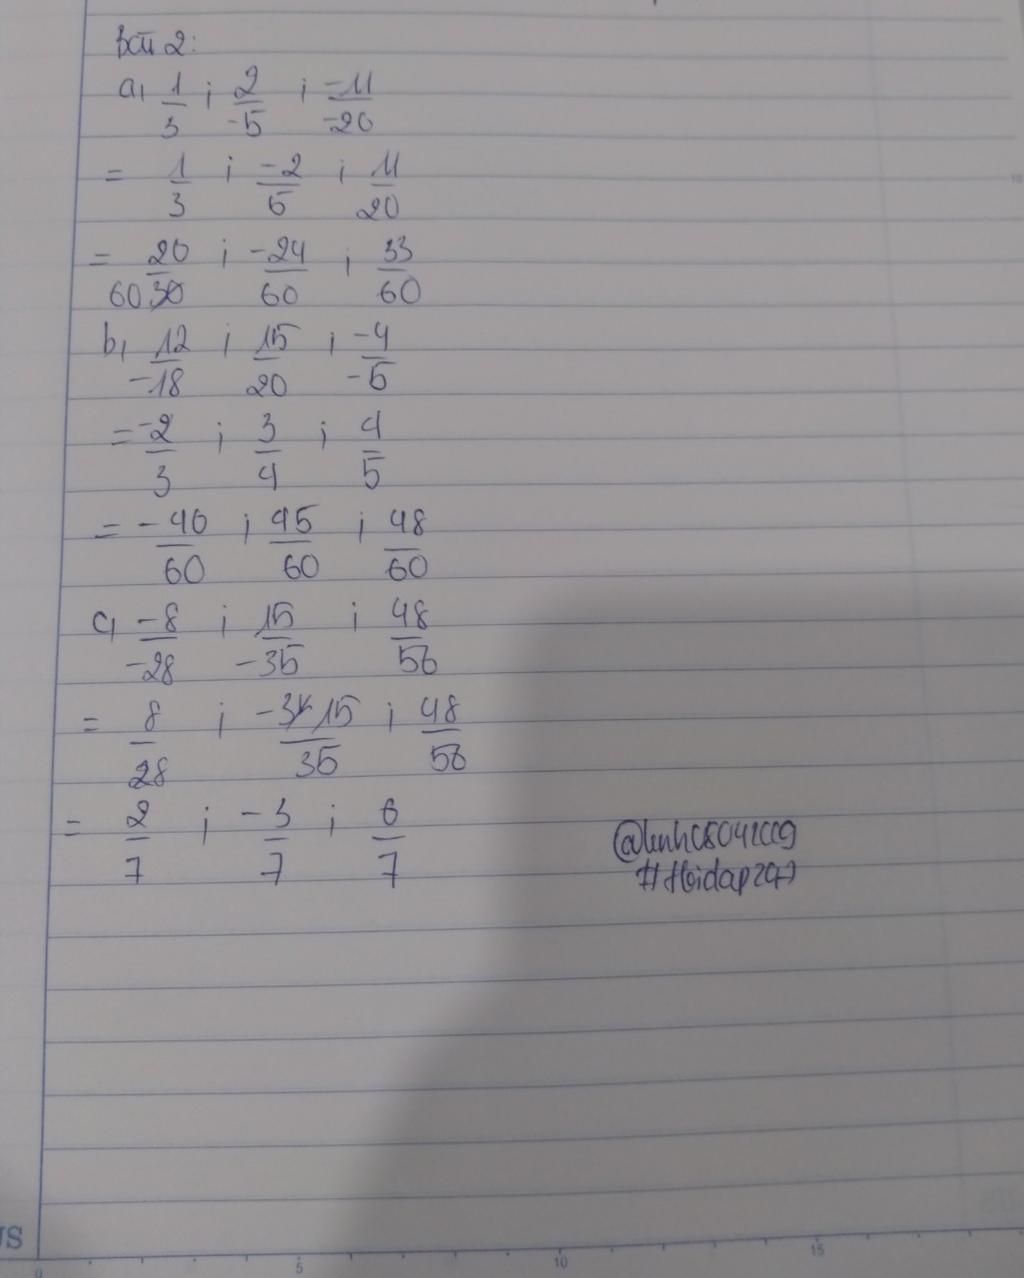 Bài 2:
a, 1/3 ; 2/-5 ; -11/-20
= 1/3 ; -2/5 ; 11/20
= 20/60 ; -24/60 ; 33/60
b, 12/-18 ; 15/20 ; -4/-5
= -2/3 ; 3/4 ; 4/5
= -40/60 ; 45/60 ; 48/60
c, -8/-28 ; 15/-35 ; 48/56
= 8/28 ; -15/35 ; 48/56
= 2/7 ; -3/7 ; 6/7
@linh08042009
#Hoidap247
US
0 5 10 15